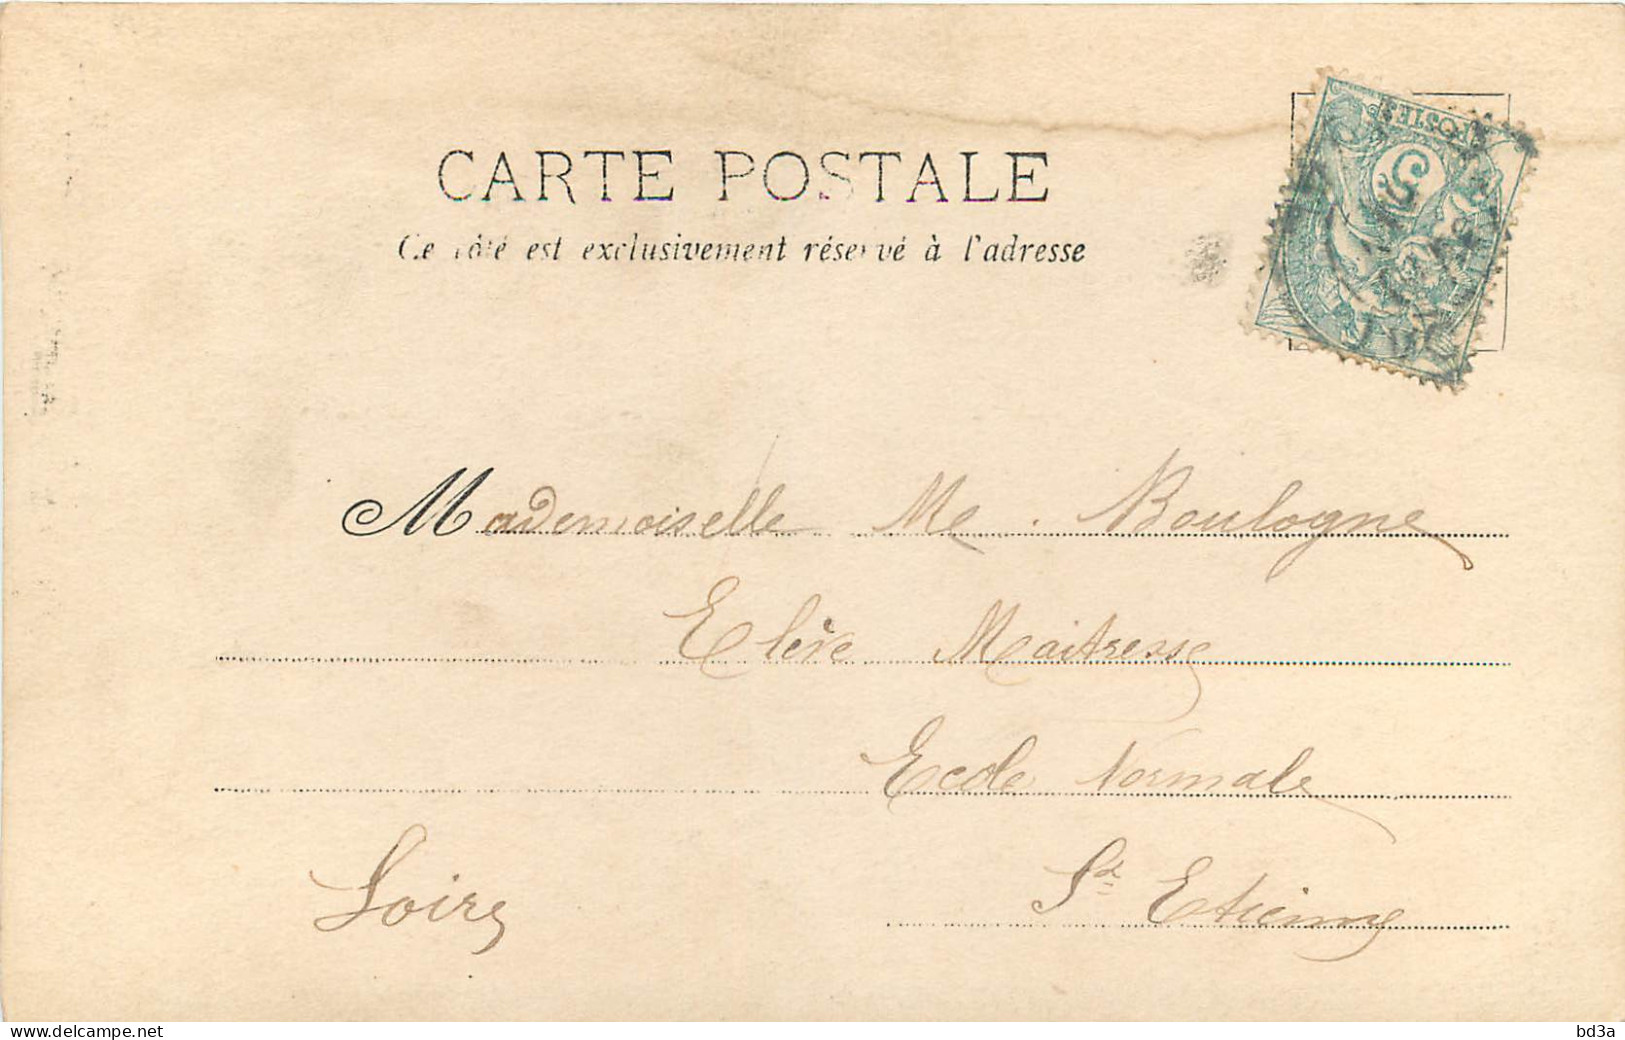 CARTE POSTALE
Ce côté est exclusivement réservé à l'adresse
POSTES
5
Mademoiselle Me. Boulogne
Elève Maitresse
Ecole Normale
St Etienne
Loire
www.delcampe.net
bd3a